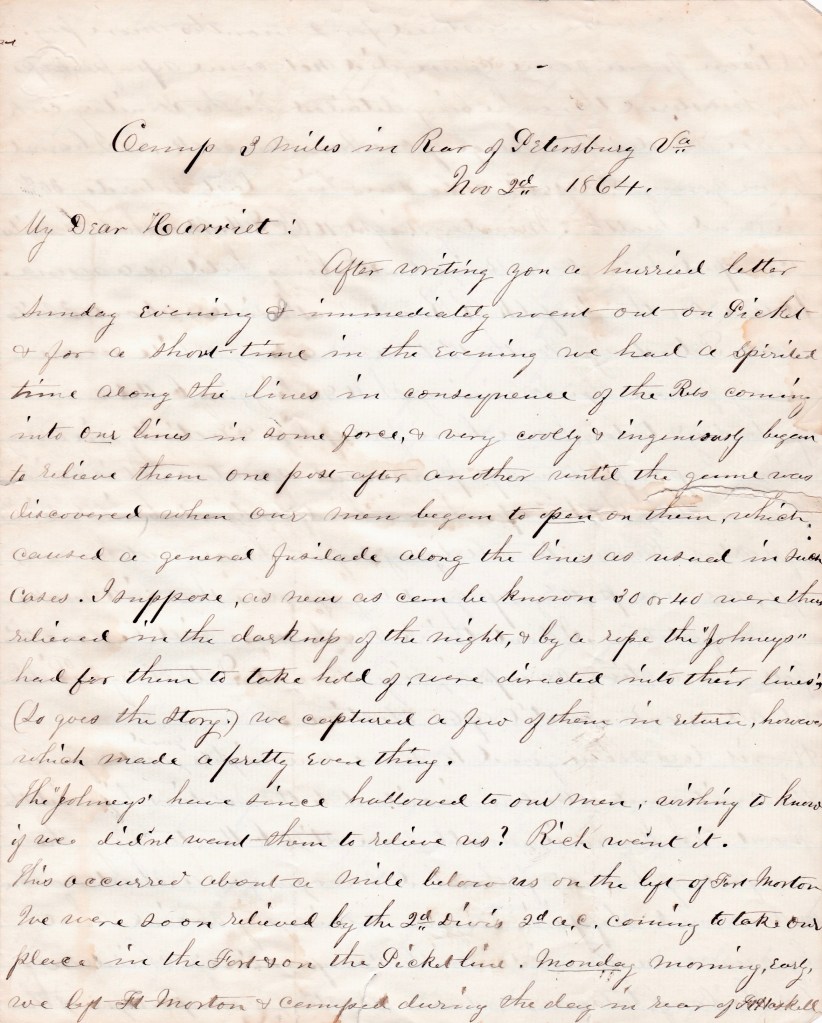 Camp 3 miles in Rear of Petersburg Va
Nov 2d 1864.
My Dear Harriet!
After writing you a hurried letter
Sunday Evening & immediately went out on Picket
& for a short time in the Evening we had a Spirited
time along the lines in consequence of the Rebs coming
into our lines in some force, & very coolly & ingeniously began
to relieve them one post after another until the game was
discovered, when our men began to open on them, which
caused a general fusilade along the lines as usual in such
Cases. I suppose, as near as can be known 30 or 40 were thus
relieved in the darkness of the night, & by a rope the "Johneys"
had for them to take hold of, were directed into their lines",
(So goes the Story.) we captured a few of them in return, however
which made a pretty even thing.
The "Johneys" have since hallowed to our men, wishing to know
if we didn't want them to relieve us? Rich want it.
This accurred about a mile below us on the left of Fort Morton
We were soon relieved by the 2d Divis 2d A.C. coming to take our
place in the Fort & on the Picket line. Monday morning, Early,
we left Ft Morton & camped during the day in rear of Ft Haskell